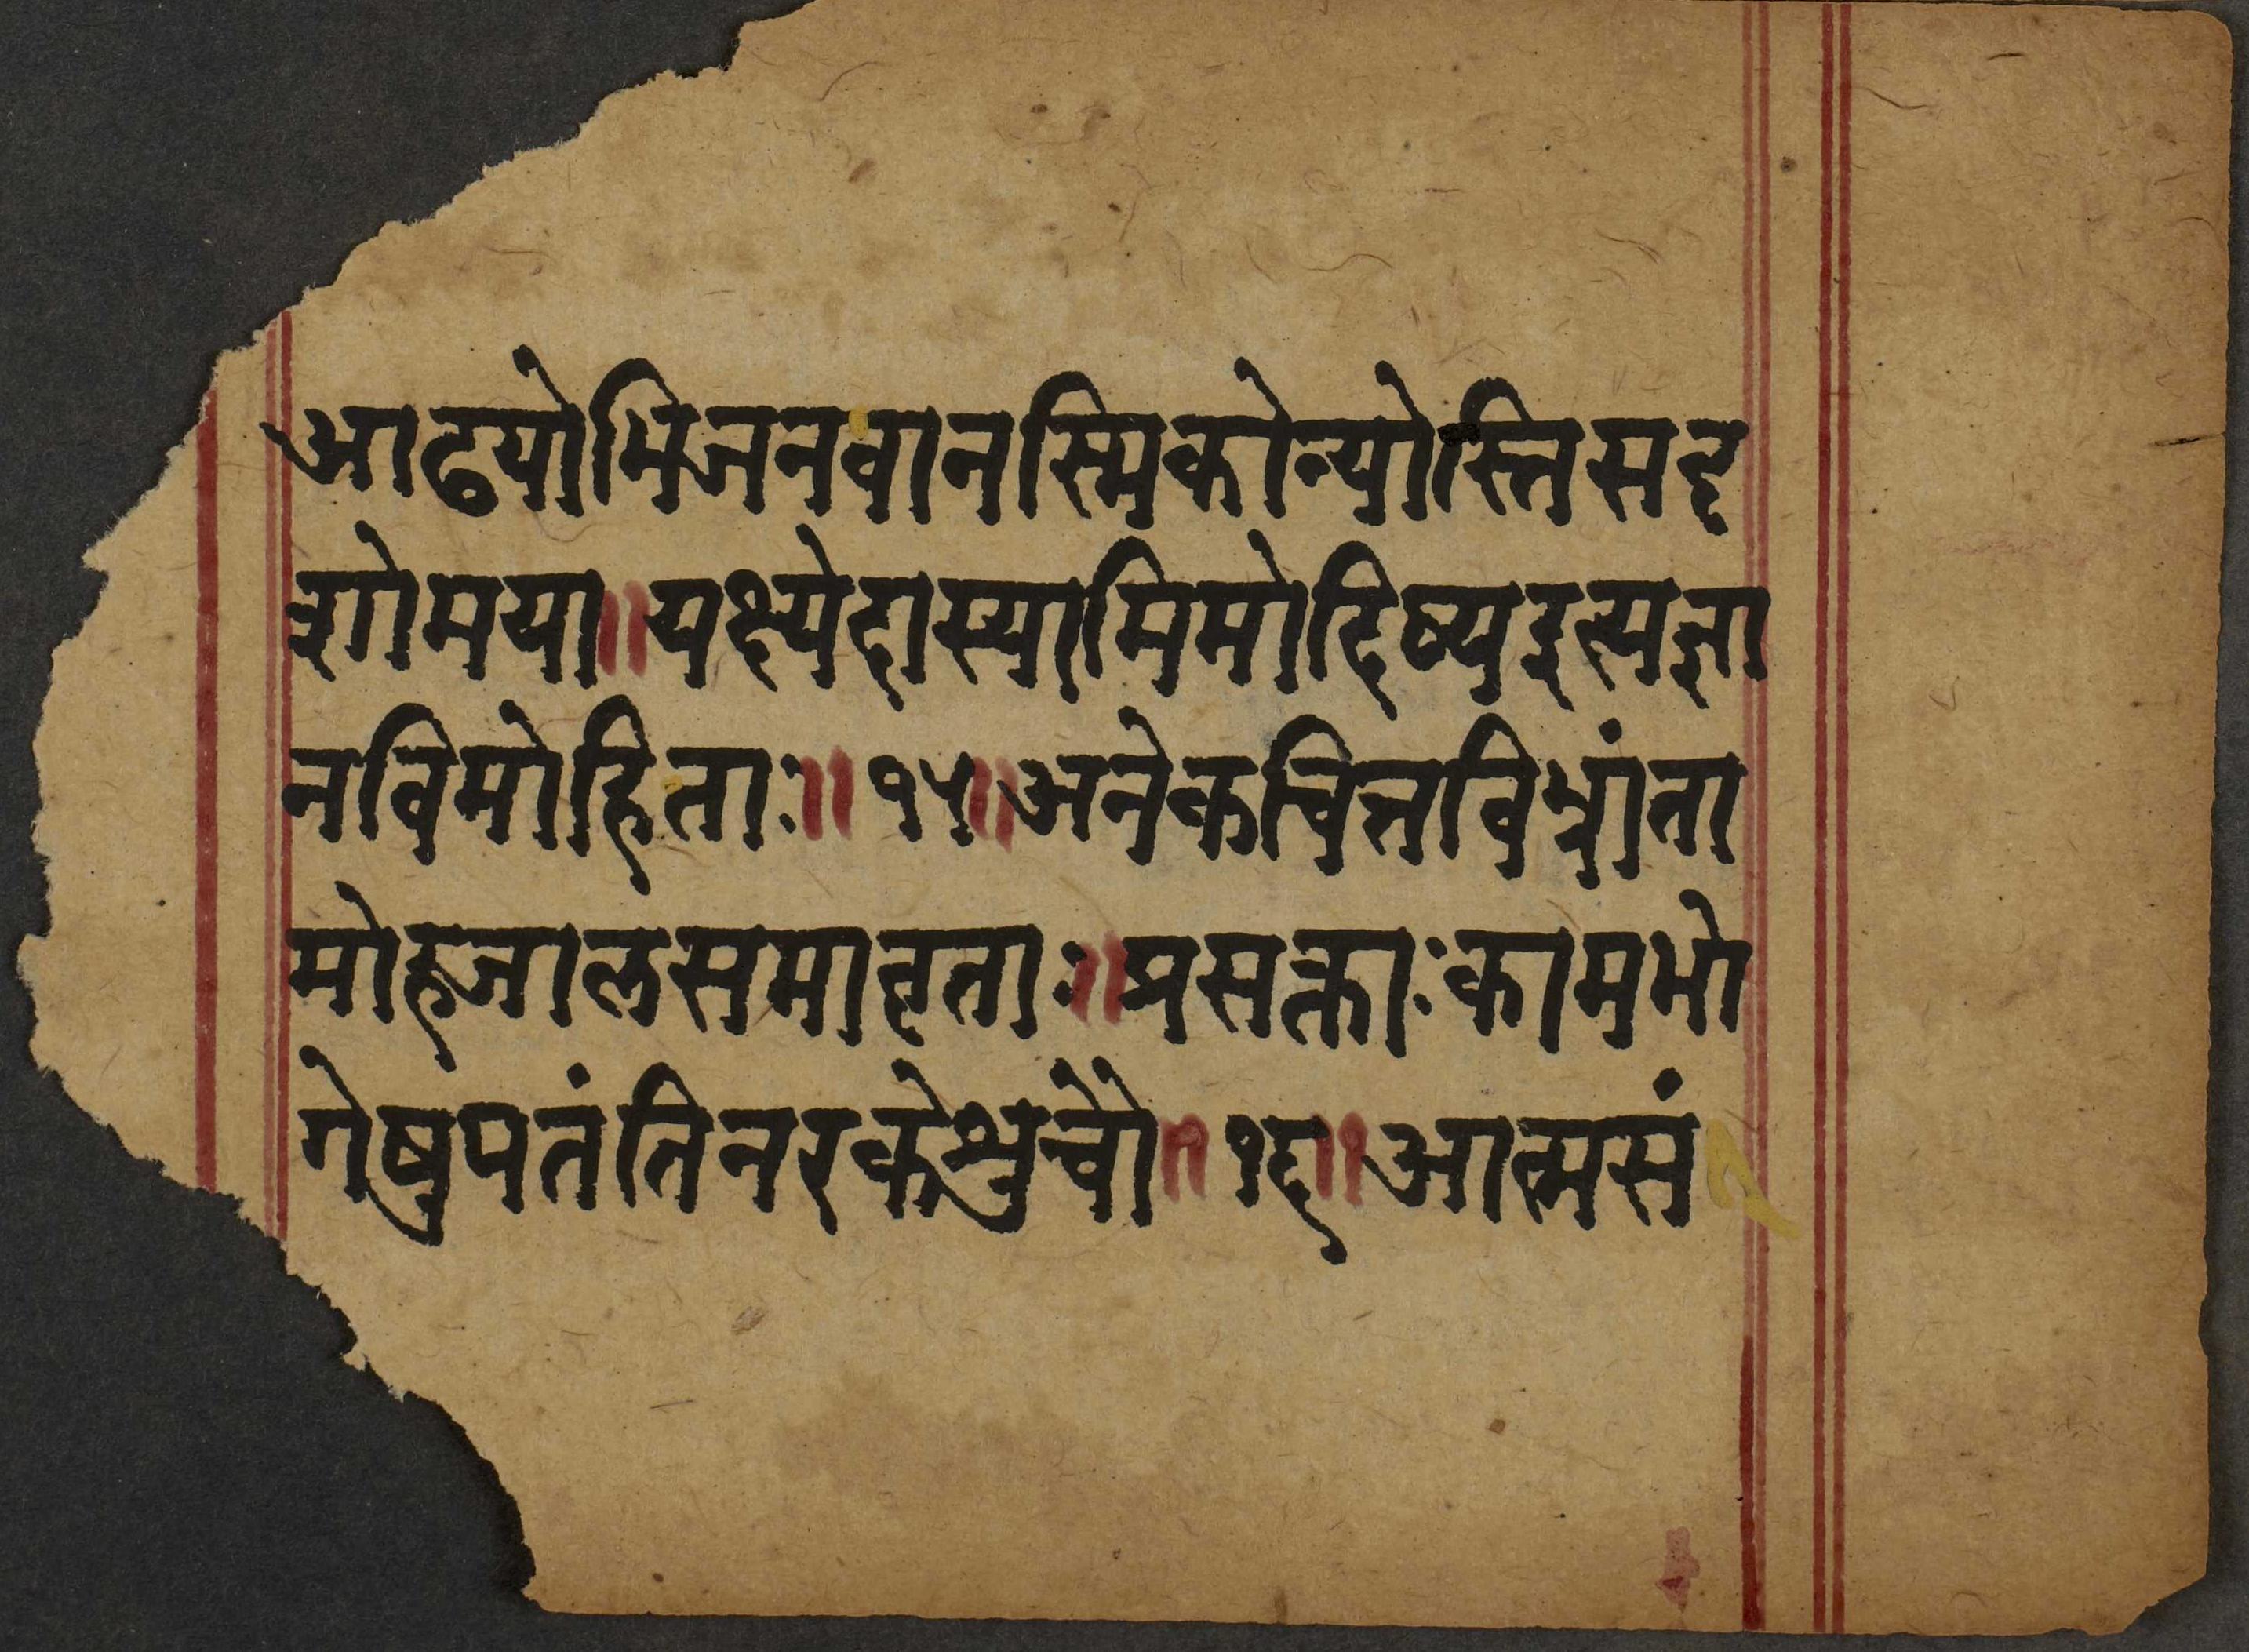 आढ्योभिजनवानस्मिकोन्योस्तिसदृ
शोमया॥यक्ष्येदास्यामिमोदिष्यइत्यज्ञा
नविमोहिताः॥१५॥अनेकचित्तविभ्रांता
मोहजालसमावृताः॥प्रसक्ताःकामभो
गेषुपतंतिनरकेशुचौ॥१६॥आत्मसं